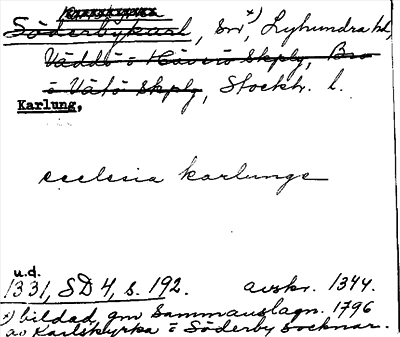 Söderbykarl, Sn ×), Lyhundra hd,
Väddö o Häverö Skplg, Bro
o Vätö Skplg, Stockh. l.
Karlung,
ecclesia karlunge
u.d.
1331, SD 4, s. 192. avskr. 1344.
×) bildad gm sammanslagn. 1796
av Karlskyrka o Söderby socknar.